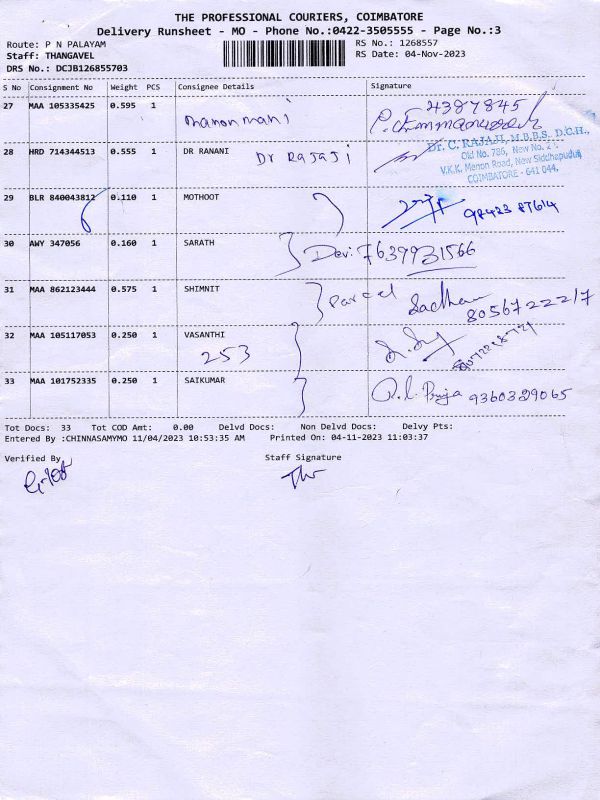 THE PROFESSIONAL COURIERS, COIMBATORE
Delivery Runsheet - MO - Phone No.:0422-3505555 - Page No.:3
Route: P N PALAYAM RS No.: 1268557
Staff: THANGAVEL RS Date: 04-Nov-2023
DRS No.: DCJB126855703
S No Consignment No Weight PCS Consignee Details Signature
27 MAA 105335425 0.595 1 manonmani 4387845
28 HRD 714344513 0.555 1 DR RANANI Dr Rajaji
Dr. C. RAJAJI, M.B.B.S. D.C.H.,
Old No. 786, New No.
V.K.K. Menon Road, New Siddhapudur,
COIMBATORE - 641 044.
29 BLR 840043812 0.110 1 MOTHOOT 98423 87614
30 AWY 347056 0.160 1 SARATH Devi 7639931566
31 MAA 862123444 0.575 1 SHIMNIT Parcel Sadhan 8056722217
32 MAA 105117053 0.250 1 VASANTHI
253
33 MAA 101752335 0.250 1 SAIKUMAR 9360329065
Tot Docs: 33 Tot COD Amt: 0.00 Delvd Docs: Non Delvd Docs: Delvy Pts:
Entered By :CHINNASAMYMO 11/04/2023 10:53:35 AM Printed On: 04-11-2023 11:03:37
Verified By Staff Signature